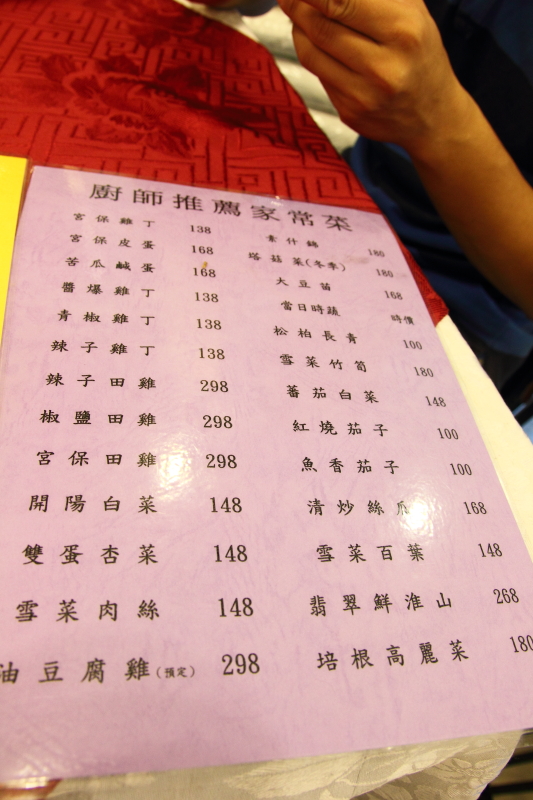 廚師推薦家常菜
宮保雞丁 138
宮保皮蛋 168
苦瓜鹹蛋 168
醬爆雞丁 138
青椒雞丁 138
辣子雞丁 138
辣子田雞 298
椒鹽田雞 298
宮保田雞 298
開陽白菜 148
雙蛋杏菜 148
雪菜肉絲 148
油豆腐雞(預定) 298
素什錦 180
塔菇菜(冬季) 180
大豆苗 168
當日時蔬 時價
松柏長青 100
雪菜竹筍 180
蕃茄白菜 148
紅燒茄子 100
魚香茄子 100
清炒絲瓜 168
雪菜百葉 148
翡翠鮮淮山 268
培根高麗菜 180